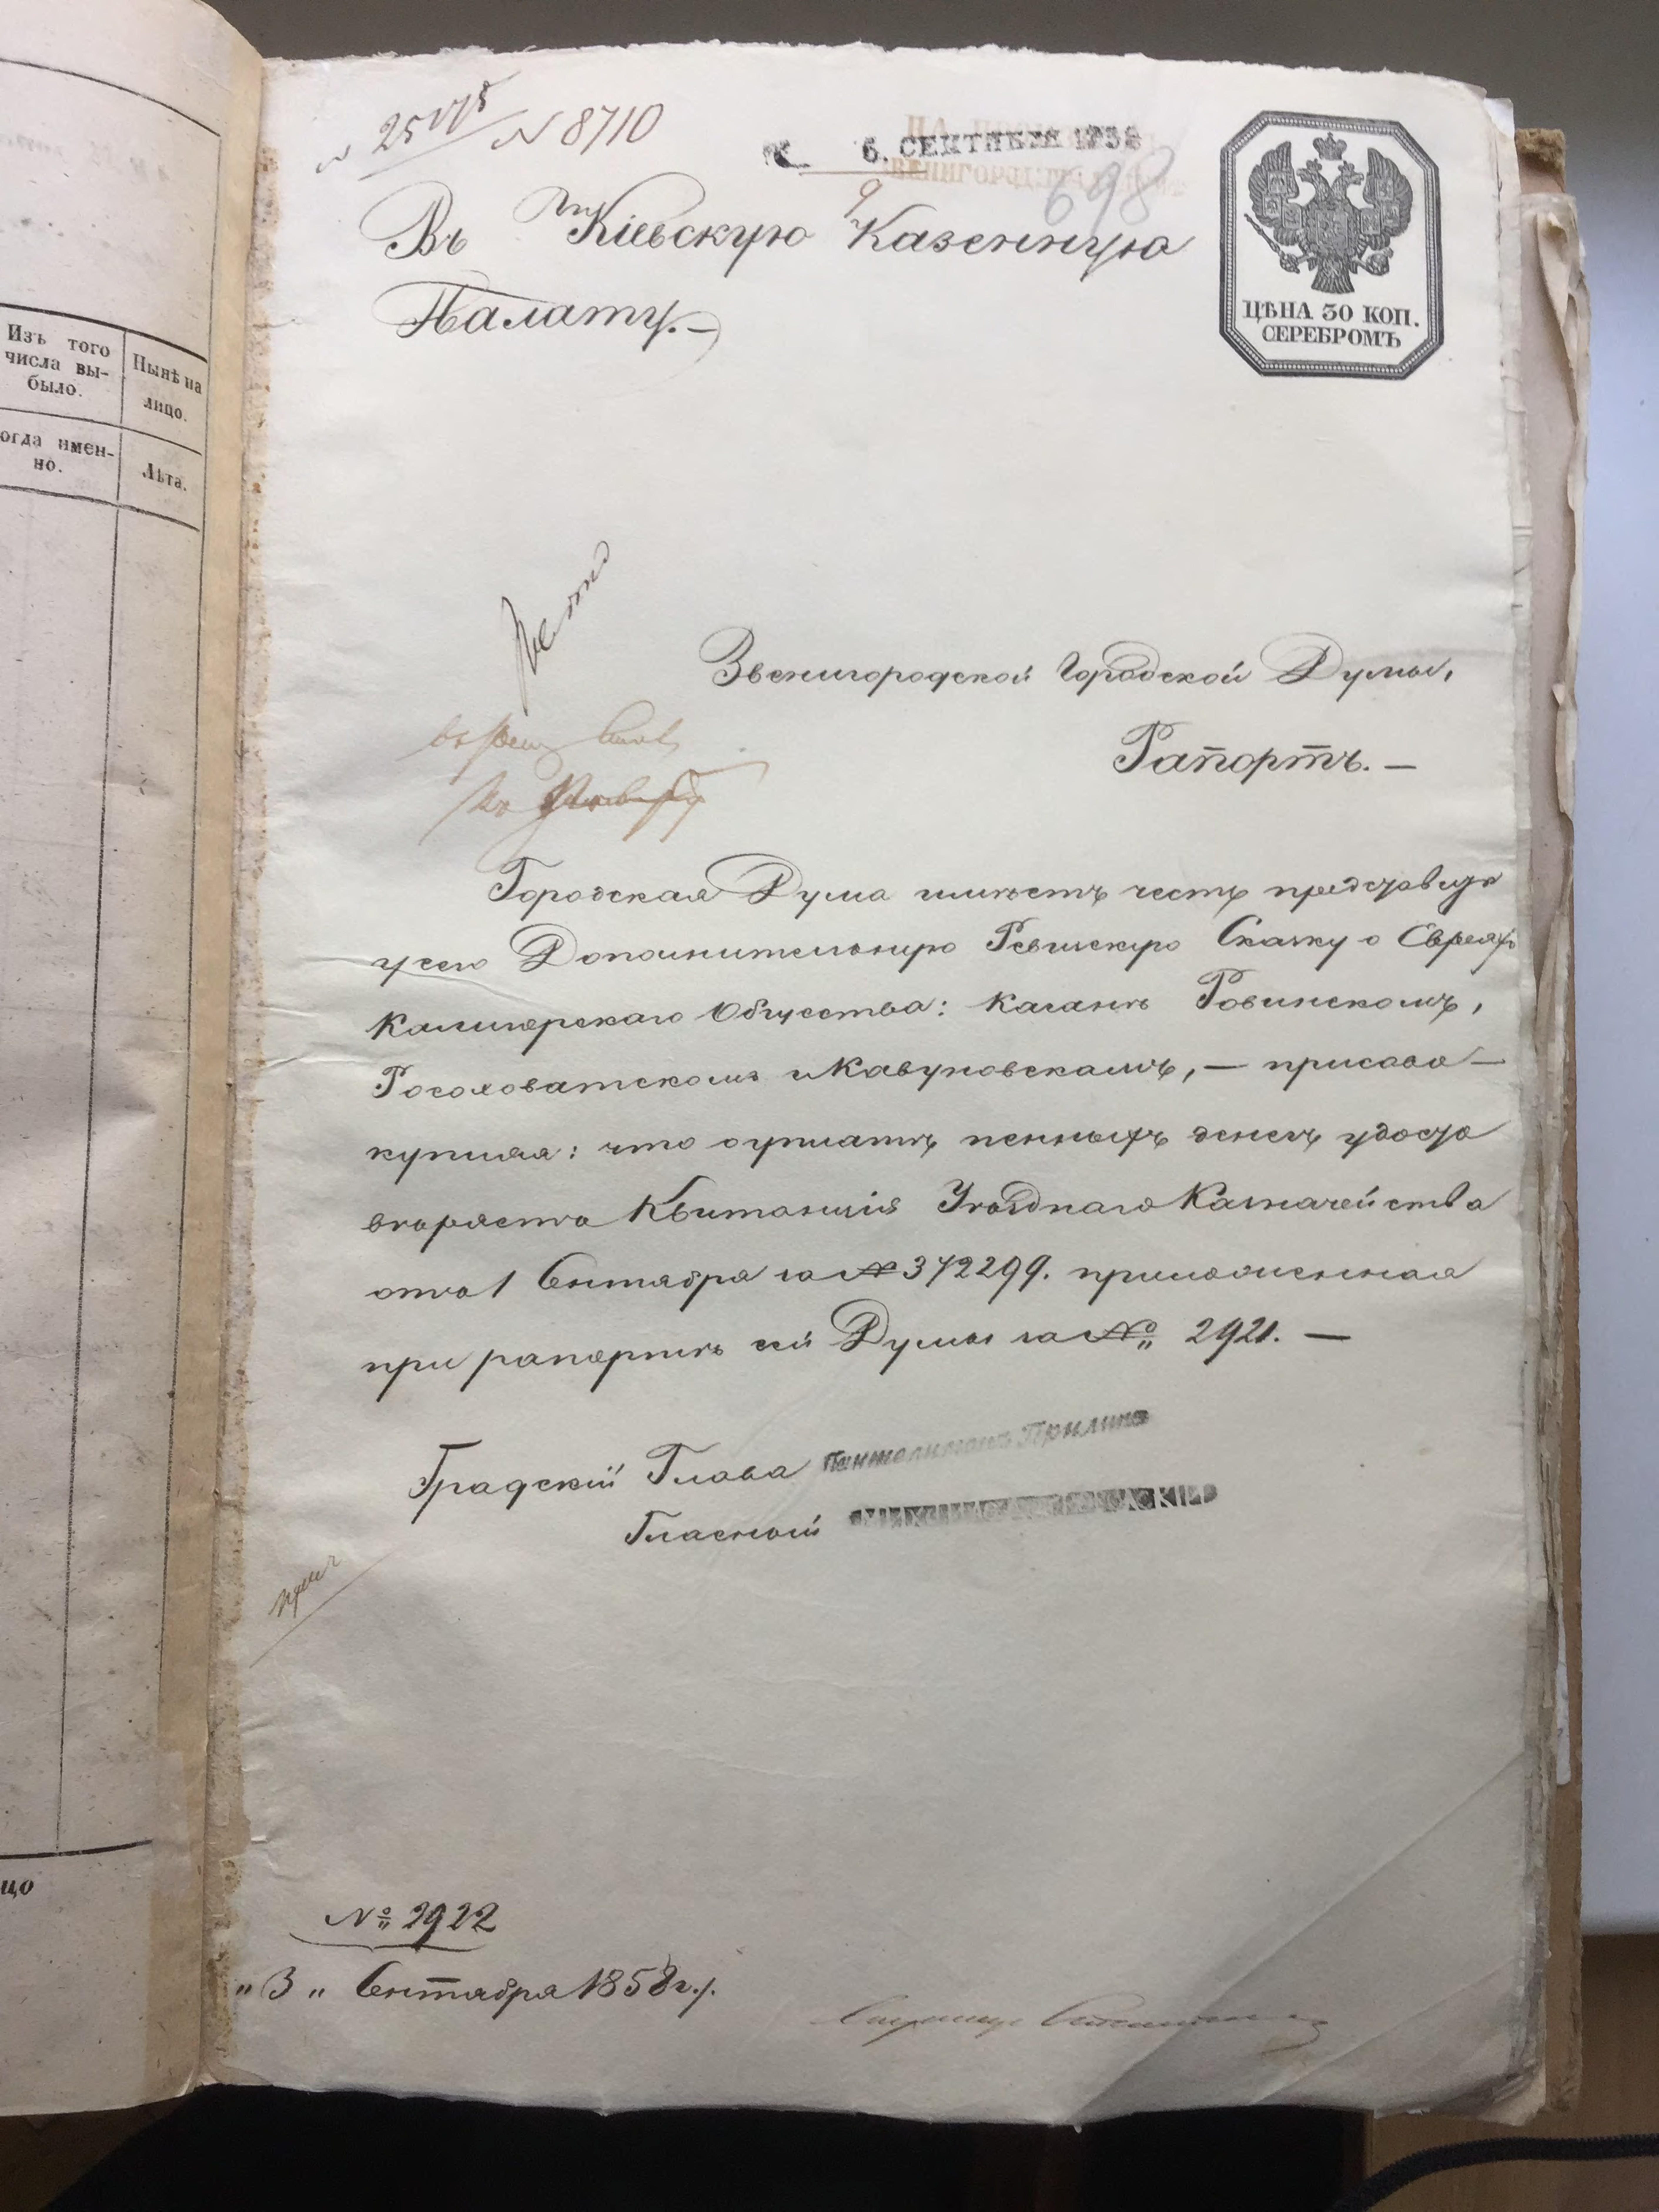 Изъ того
числа вы-
было.
Нынѣ на
лицо.
огда имен-
но.
Лѣта.
цо
N 8710
6. СЕНТЯБРЯ 1858
698
Въ Кіевскую Казенную
Палату.—
ЦѢНА 30 КОП.
СЕРЕБРОМЪ
Звенигородской Городской Думы,
Рапортъ.—
Городская Дума имѣетъ честь представить
у сего Дополнительную Ревискую Скаску о Евреяхъ
Калигорскаго Общества: Каганѣ Ровинскомъ,
Росоловатскомъ и Кавуновскомъ, — присово-
купляя: что о уплатѣ пенныхъ денегъ удосто
вѣряетъ Квитанція Уѣзднаго Казначейства
отъ 1 Сентября за № 372299. приложенная
при рапортѣ сей Думы за № 2921. —
Градскій Глава Пантелимонъ Прилипа
Гласный
№ 2922
"3" Сентября 1858 г.